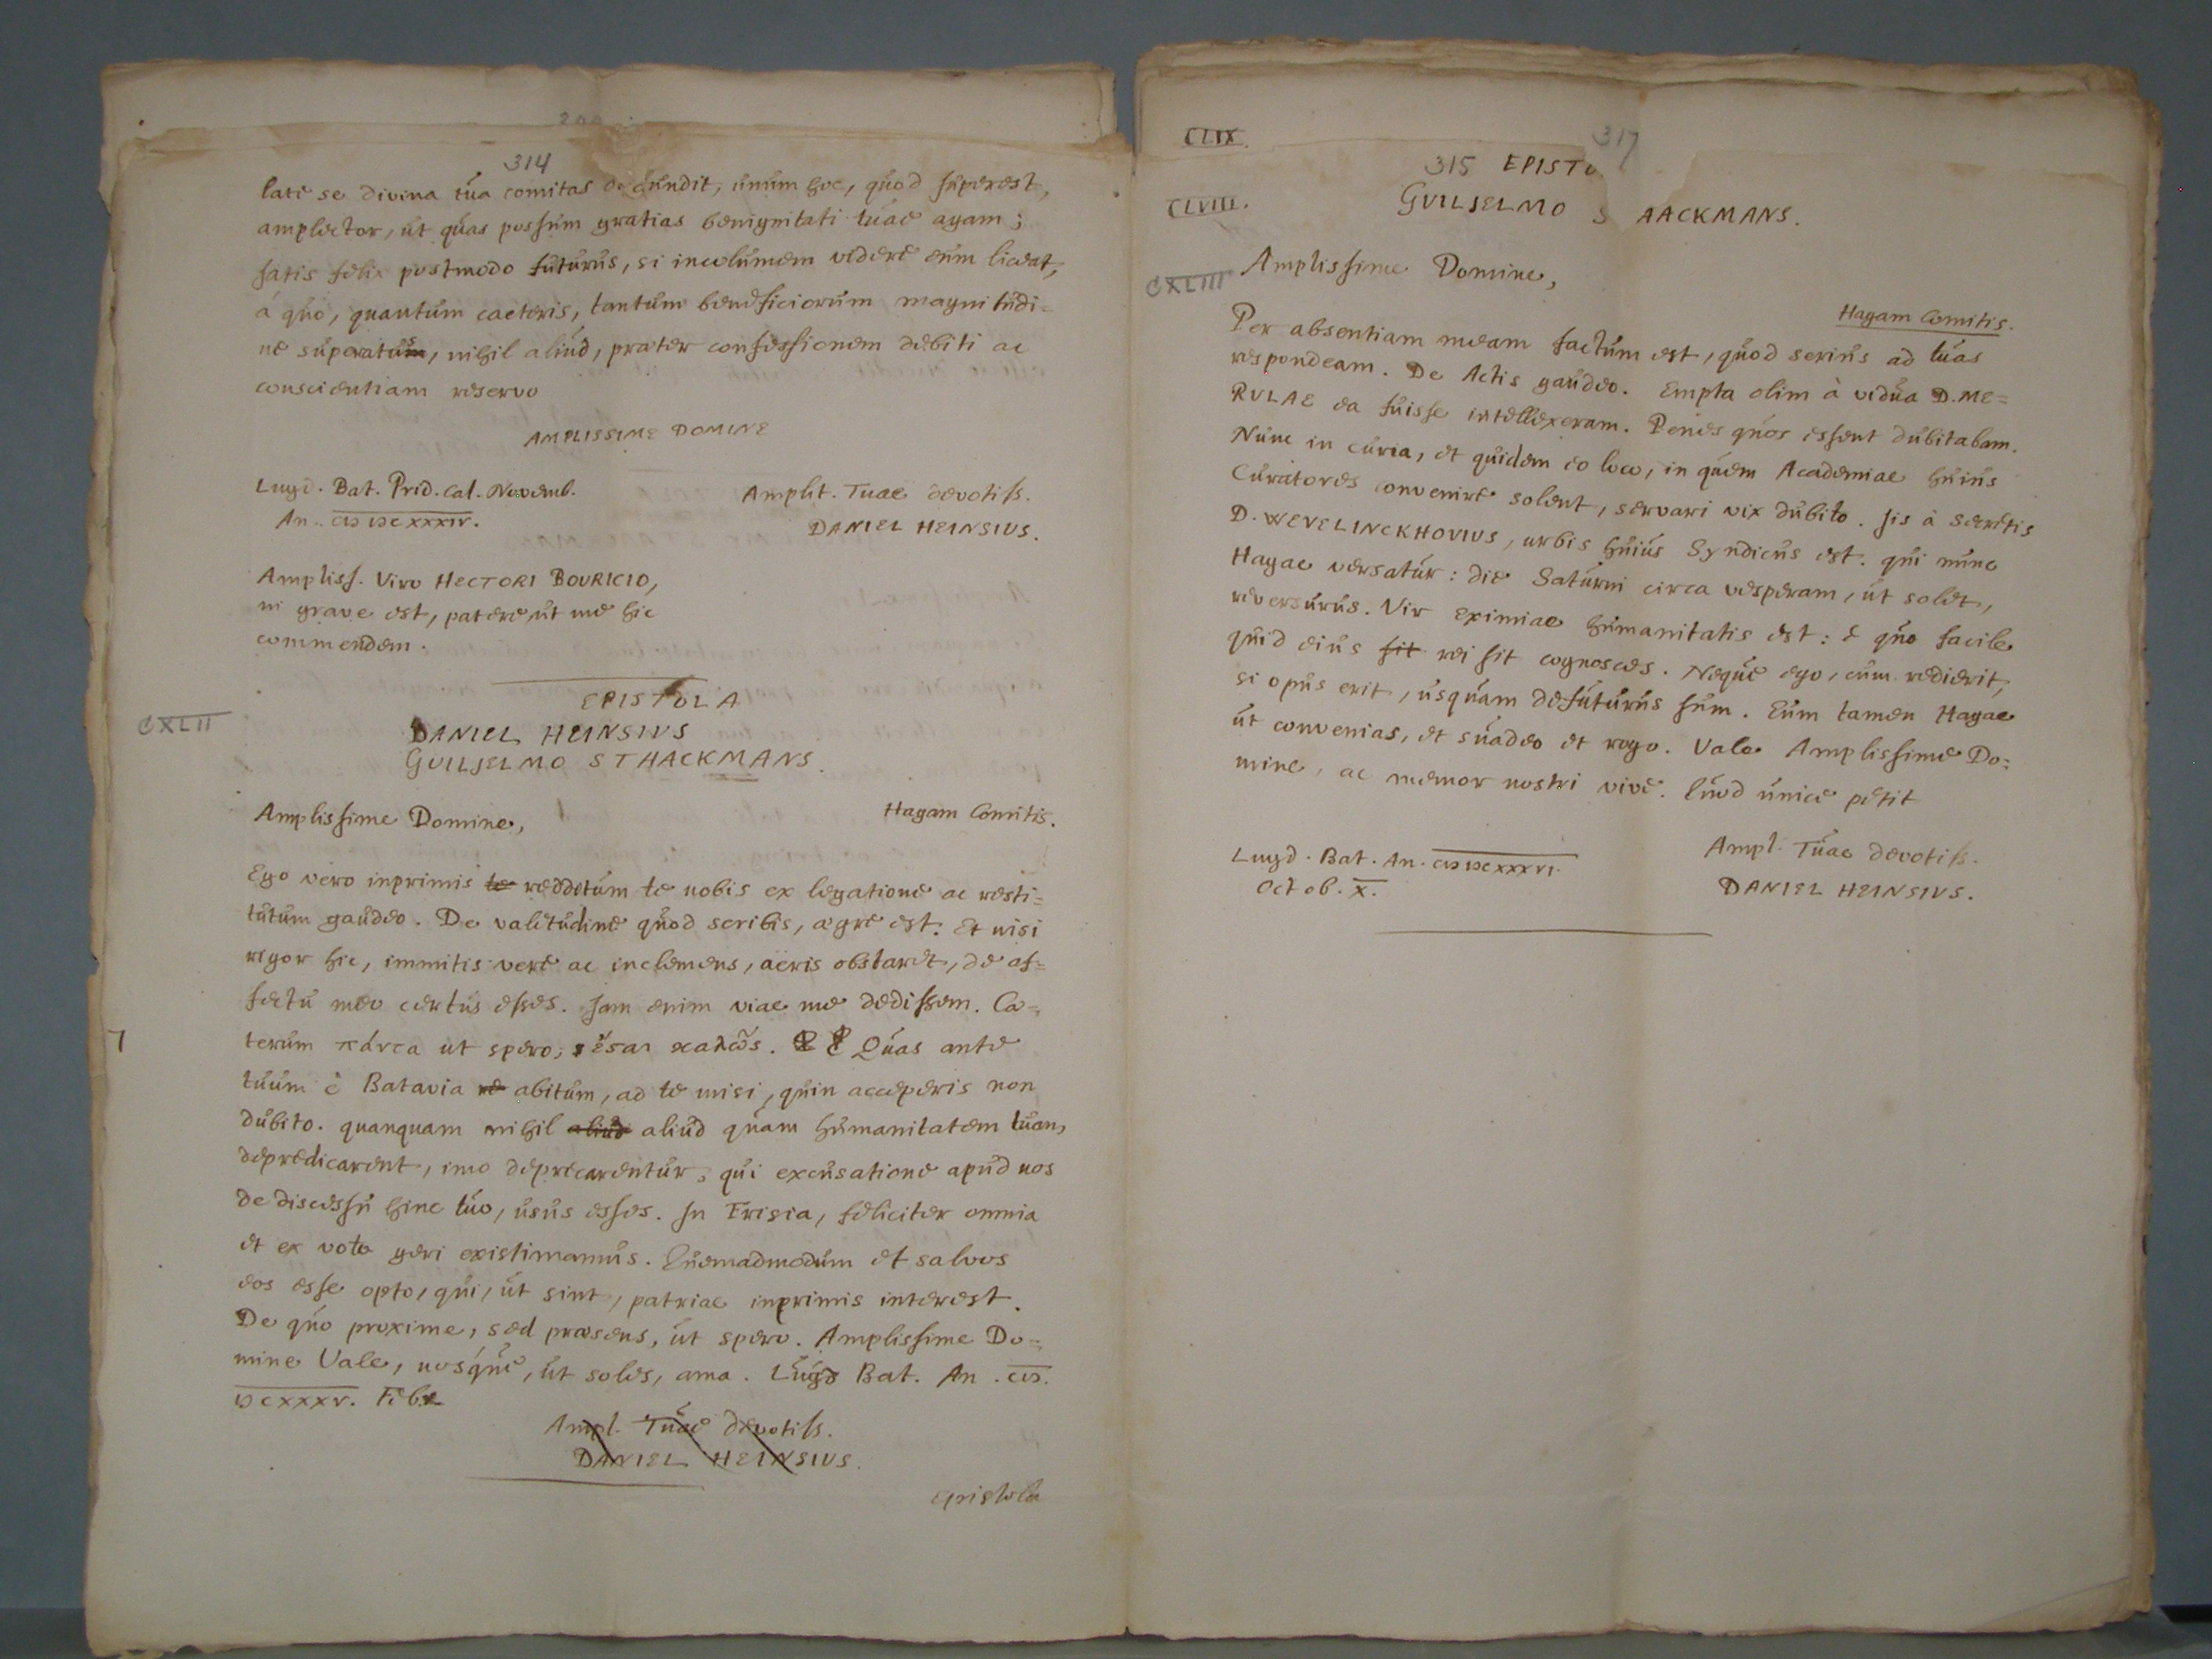 314
late se divina tua comitas diffundit, unum hoc, quod superest,
amplector, ut quas possum gratias benignitati tuae agam;
satis felix postmodo futurus, si incolumem videre eum liceat,
à quo, quantum caeteris, tantum beneficiorum magnitudi=
ne superatus, nihil aliud, praeter confessionem debiti ac
conscientiam reservo
AMPLISSIME DOMINE
Lugd. Bat. Prid. Cal. Novemb.
An. cIɔ Iɔc xxxIV.
Amplit. Tuae devotiss.
DANIEL HEINSIVS.
Ampliss. Viro HECTORI BOVRICIO,
ni grave est, patere, ut me hic
commendem.
EPISTOLA
CXLII
DANIEL HEINSIVS
GVILJELMO STHACKMANS.
Amplissime Domine,
Hagam Comitis.
Ego vero inprimis te redditum te nobis ex legatione ac resti=
tutum gaudeo. De valetudine quod scribis, aegre est. Et nisi
rigor hic, immitis vere ac inclemens, aëris obstaret, de af=
fectu meo certus esses. Jam enim viae me dedissem. Cae=
terum πάντα ut spero, ἔσαι καλῶς. Quas ante
tuum è Batavia re abitum, ad te misi, quin acceperis non
dubito. quanquam nihil aliud aliud quam humanitatem tuam
depredicarent, imo deprecarentur, qui excusatione apud nos
de discessu hinc tuo, usus esses. In Frisia, feliciter omnia
et ex voto geri existimamus. Quemadmodum et salvos
eos esse opto, qui, ut sint, patriae inprimis interest.
De quo proxime, sed praesens, ut spero. Amplissime Do=
mine Vale, nosque, ut soles, ama. Lugd Bat. An. cIɔ.
Iɔcxxxv. Feb.
Ampl. Tuae devotiss.
DANIEL HEINSIVS.
Epistola
CLIX.
317
315 EPISTO
CLVIII.
GVILJELMO S AACKMANS.
CXLIII
Amplissime Domine,
Hagam Comitis.
Per absentiam meam factum est, quod serius ad tuas
respondeam. De Actis gaudeo. Empta olim à vidua D. ME=
RVLAE ea fuisse intellexeram. Penes quos essent dubitabam.
Nunc in curia, et quidem eo loco, in quem Academiae huius
Curatores convenire solent, servari vix dubito. Iis à secretis
D. WEVELINCKHOVIVS, urbis huius Syndicus est. qui nunc
Hagae versatur: die Saturni circa vesperam, ut solet,
reversurus. Vir eximiae humanitatis est: è quo facile
quid eius sit rei sit cognosces. Neque ego, cum redierit,
si opus erit, usquam defuturus sum. Eum tamen Hagae
ut convenias, et suadeo et rogo. Vale Amplissime Do=
mine, ac memor nostri vive. Quod unice petit
Lugd. Bat. An. cIɔ Iɔcxxxvi.
Octob. X.
Ampl. Tuae devotiss.
DANIEL HEINSIVS.